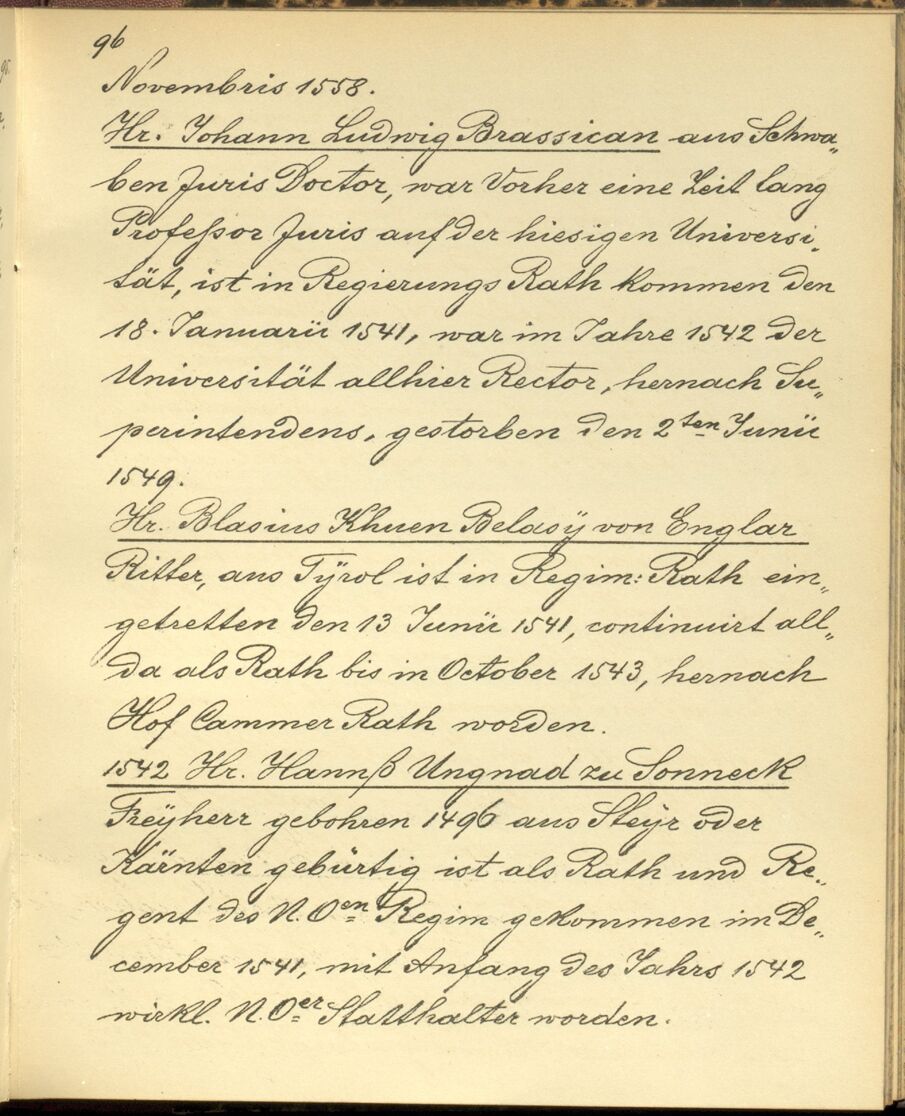 96
Novembris 1558.
Hr. Johann Ludwig Brassican aus Schwa„
ben Juris Doctor, war Vorher eine Zeit lang
Profeßor Juris auf der hiesigen Universi„
tät, ist in Regierungs Rath kommen den
18. Januarii 1541, war im Jahre 1542 der
Universität allhier Rector, hernach Su„
perintendens, gestorben den 2ten Junii
1549.
Hr. Blasius Khuen Belasÿ von Englar
Ritter, aus Tÿrol ist in Regim: Rath ein„
getretten den 13 Junii 1541, continuirt all„
da als Rath bis in October 1543, hernach
Hof Cammer Rath worden.
1542 Hr. Hannß Ungnad zu Sonneck
Freÿherr gebohren 1496 aus Steÿr oder
Kärnten gebürtig ist als Rath und Re„
gent des N. Oen Regim gekommen im De„
cember 1541, mit Anfang des Jahrs 1542
wirkl. N. Oer Statthalter worden.